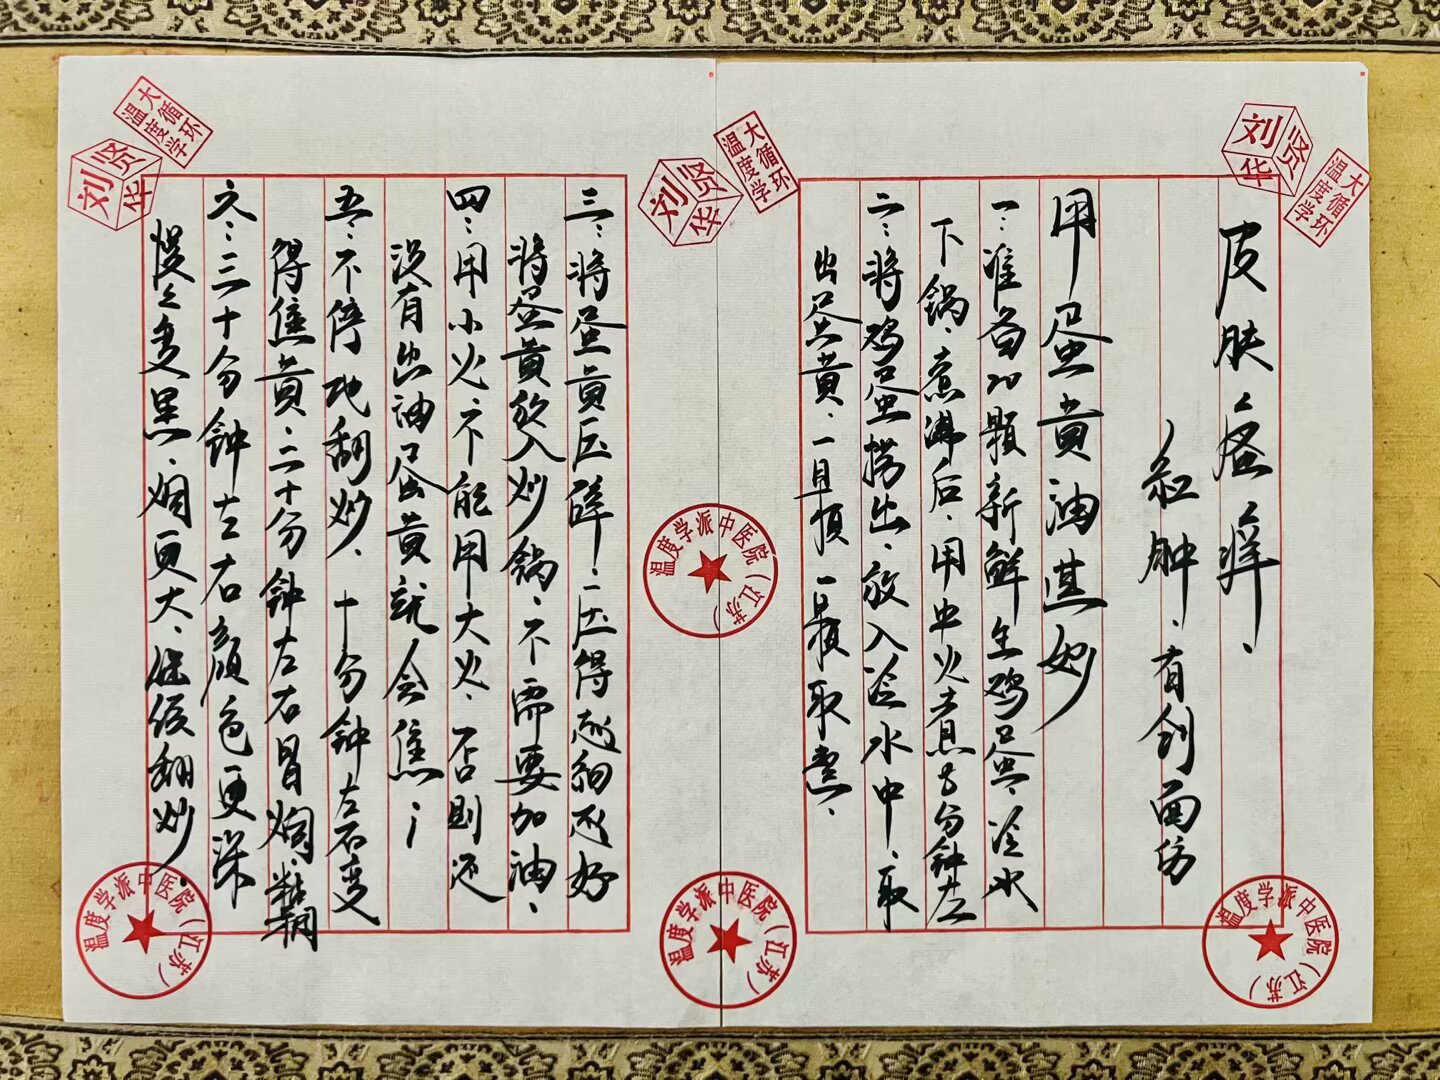 皮肤瘙痒、
红肿、有创面仿
用蛋黄油其妙
一：准备20颗新鲜生鸡蛋、冷水
下锅、煮沸后、用中火煮5分钟左
二：将鸡蛋捞出、放入冷水中、取
出蛋黄、一颗一颗取
三：将蛋黄压碎；压得越细越好
将蛋黄放入炒锅、不需要加油、
四：用小火、不能用大火、否则还
没有出油蛋黄就会焦；
五：不停地翻炒、十分钟左右变
得焦黄、二十分钟左右冒烟、粘稠
六：三十分钟左右颜色更深
慢慢变黑、烟更大、继续翻炒、
刘贤华
大循环
温度学
刘贤华
大循环
温度学
刘贤华
大循环
温度学
温度学派中医院（江苏）
温度学派中医院（江苏）
温度学派中医院（江苏）
温度学派中医院（江苏）